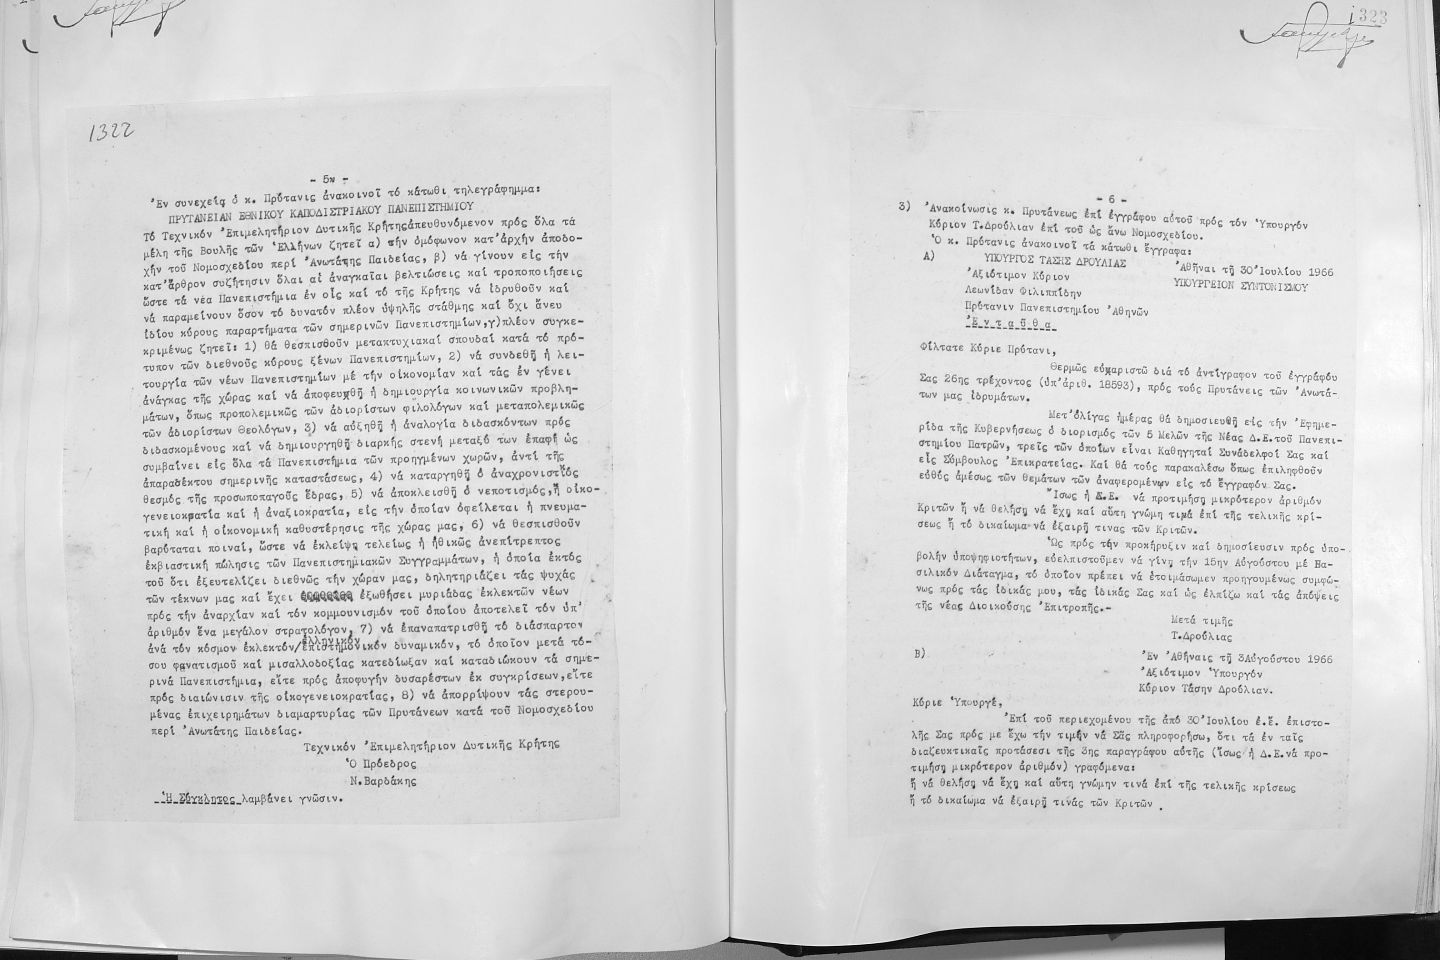 1322
- 5 -
Ἐν συνεχείᾳ ὁ κ. Πρύτανις ἀνακοινοῖ τό κάτωθι τηλεγράφημμα:
ΠΡΥΤΑΝΕΙΑΝ ΕΘΝΙΚΟΥ ΚΑΠΟΔΙΣΤΡΙΑΚΟΥ ΠΑΝΕΠΙΣΤΗΜΙΟΥ
Τό Τεχνικόν Ἐπιμελητήριον Δυτικῆς Κρήτηςἀπευθυνόμενον πρός ὅλα τά
μέλη τῆς Βουλῆς τῶν Ἑλλήνων ζητεῖ α) τήν ὁμόφωνον κατ'ἀρχήν ἀποδο-
χήν τοῦ Νομοσχεδίου περί Ἀνωτάτης Παιδείας, β) νά γίνουν εἰς τήν
κατ'ἄρθρον συζήτησιν ὅλαι αἱ ἀναγκαῖαι βελτιώσεις καί τροποποιήσεις
ὥστε τά νέα Πανεπιστήμια ἐν οἷς καί τό τῆς Κρήτης νά ἱδρυθοῦν καί
νά παραμείνουν ὅσον τό δυνατόν πλέον ὑψηλῆς στάθμης καί ὄχι ἄνευ
ἰδίου κύρους παραρτήματα τῶν σημερινῶν Πανεπιστημίων,γ)πλέον συγκε-
κριμένως ζητεῖ: 1) θά θεσπισθοῦν μεταπτυχιακαί σπουδαί κατά τό πρό-
τυπον τῶν διεθνοῦς κύρους ξένων Πανεπιστημίων, 2) νά συνδεθῇ ἡ λει-
τουργία τῶν νέων Πανεπιστημίων μέ τήν οἰκονομίαν καί τάς ἐν γένει
ἀνάγκας τῆς χώρας καί νά ἀποφευχθῇ ἡ δημιουργία κοινωνικῶν προβλη-
μάτων, ὅπως προπολεμικῶς τῶν ἀδιορίστων φιλολόγων καί μεταπολεμικῶς
τῶν ἀδιορίστων Θεολόγων, 3) νά αὐξηθῇ ἡ ἀναλογία διδασκόντων πρός
διδασκομένους καί νά δημιουργηθῇ διαρκής στενή μεταξύ των ἐπαφή ὡς
συμβαίνει εἰς ὅλα τά Πανεπιστήμια τῶν προηγμένων χωρῶν, ἀντί τῆς
ἀπαραδέκτου σημερινῆς καταστάσεως, 4) νά καταργηθῇ ὁ ἀναχρονιστικός
θεσμός τῆς προσωποπαγοῦς ἕδρας, 5) νά ἀποκλεισθῇ ὁ νεποτισμός,ἡ οἰκο-
γενειοκρατία καί ἡ ἀναξιοκρατία, εἰς τήν ὁποίαν ὀφείλεται ἡ πνευμα-
τική καί ἡ οἰκονομική καθυστέρησις τῆς χώρας μας, 6) νά θεσπισθοῦν
βαρύταται ποιναί, ὥστε νά ἐκλείψῃ τελείως ἡ ἠθικῶς ἀνεπίτρεπτος
ἐκβιαστική πώλησις τῶν Πανεπιστημιακῶν Συγγραμμάτων, ἡ ὁποία ἐκτός
τοῦ ὅτι ἐξευτελίζει διεθνῶς τήν χώραν μας, δηλητηριάζει τάς ψυχάς
τῶν τέκνων μας καί ἔχει ἐξωθήσει μυριάδας ἐκλεκτῶν νέων
πρός τήν ἀναρχίαν καί τόν κομμουνισμόν τοῦ ὁποίου ἀποτελεῖ τόν ὑπ'
ἀριθμόν ἕνα μεγάλον στρατολόγον, 7) νά ἐπαναπατρισθῇ τό διάσπαρτον
ἑλληνικόν
ἀνά τόν κόσμον ἐκλεκτόν/ἐπιστημονικόν δυναμικόν, τό ὁποῖον μετά τό-
σου φανατισμοῦ καί μισαλλοδοξίας κατεδίωξαν καί καταδιώκουν τά σημε-
ρινά Πανεπιστήμια, εἴτε πρός ἀποφυγήν δυσαρέστων ἐκ συγκρίσεων,εἴτε
πρός διαιώνισιν τῆς οἰκογενειοκρατίας, 8) νά ἀπορρίψουν τάς στερου-
μένας ἐπιχειρημάτων διαμαρτυρίας τῶν Πρυτάνεων κατά τοῦ Νομοσχεδίου
περί Ἀνωτάτης Παιδείας.
Τεχνικόν Ἐπιμελητήριον Δυτικῆς Κρήτης
Ὁ Πρόεδρος
Ν.Βαρδάκης
Ἡ Σύγκλητος λαμβάνει γνῶσιν.
1323
- 6 -
3) Ἀνακοίνωσις κ. Πρυτάνεως ἐπί ἐγγράφου αὐτοῦ πρός τόν Ὑπουργόν
Κύριον Τ.Δρούλιαν ἐπί τοῦ ὡς ἄνω Νομοσχεδίου.
Ὁ κ. Πρύτανις ἀνακοινοῖ τά κάτωθι ἔγγραφα:
Α) ΥΠΟΥΡΓΟΣ ΤΑΣΗΣ ΔΡΟΥΛΙΑΣ Ἀθῆναι τῇ 30 Ἰουλίου 1966
Ἀξιότιμον Κύριον ΥΠΟΥΡΓΕΙΟΝ ΣΥΝΤΟΝΙΣΜΟΥ
Λεωνίδαν Φιλιππίδην
Πρύτανιν Πανεπιστημίου Ἀθηνῶν
Ἐνταῦθα
Φίλτατε Κύριε Πρύτανι,
Θερμῶς εὐχαριστῶ διά τό ἀντίγραφον τοῦ ἐγγράφου
Σας 26ης τρέχοντος (ὑπ'ἀριθ. 18593), πρός τούς Πρυτάνεις τῶν Ἀνωτά-
των μας ἱδρυμάτων.
Μετ'ὀλίγας ἡμέρας θά δημοσιευθῇ εἰς τήν Ἐφημε-
ρίδα τῆς Κυβερνήσεως ὁ διορισμός τῶν 5 Μελῶν τῆς Νέας Δ.Ε.τοῦ Πανεπι-
στημίου Πατρῶν, τρεῖς τῶν ὁποίων εἶναι Καθηγηταί Συνάδελφοί Σας καί
εἷς Σύμβουλος Ἐπικρατείας. Καί θά τούς παρακαλέσω ὅπως ἐπιληφθοῦν
εὐθύς ἀμέσως τῶν θεμάτων τῶν ἀναφερομένων εἰς τό ἔγγραφόν Σας.
Ἴσως ἡ Δ.Ε. νά προτιμήσῃ μικρότερον ἀριθμόν
Κριτῶν ἤ νά θελήσῃ νά ἔχῃ καί αὕτη γνώμη τινά ἐπί τῆς τελικῆς κρί-
σεως ἤ τό δικαίωμα νά ἐξαιρῇ τινας τῶν Κριτῶν.
Ὡς πρός τήν προκήρυξιν καί δημοσίευσιν πρός ὑπο-
βολήν ὑποψηφιοτήτων, εὐελπιστοῦμεν νά γίνῃ τήν 15ην Αὐγούστου μέ Βα-
σιλικόν Διάταγμα, τό ὁποῖον πρέπει νά ἑτοιμάσωμεν προηγουμένως συμφώ-
νως πρός τάς ἰδικάς μου, τάς ἰδικάς Σας καί ὡς ἐλπίζω καί τάς ἀπόψεις
τῆς νέας Διοικούσης Ἐπιτροπῆς.-
Μετά τιμῆς
Τ.Δρούλιας
Β) Ἐν Ἀθήναις τῇ 3Αὐγούστου 1966
Ἀξιότιμον Ὑπουργόν
Κύριον Τάσην Δρούλιαν.
Κύριε Ὑπουργέ,
Ἐπί τοῦ περιεχομένου τῆς ἀπό 30 Ἰουλίου ἐ.ἔ. ἐπιστο-
λῆς Σας πρός με ἔχω τήν τιμήν νά Σᾶς πληροφορήσω, ὅτι τά ἐν ταῖς
διαζευκτικαῖς προτάσεσι τῆς 3ης παραγράφου αὐτῆς (ἴσως ἡ Δ.Ε.νά προ-
τιμήσῃ μικρότερον ἀριθμόν) γραφόμενα:
ἤ νά θελήσῃ νά ἔχῃ καί αὕτη γνώμην τινά ἐπί τῆς τελικῆς κρίσεως
ἤ τό δικαίωμα νά ἐξαιρῇ τινάς τῶν Κριτῶν .